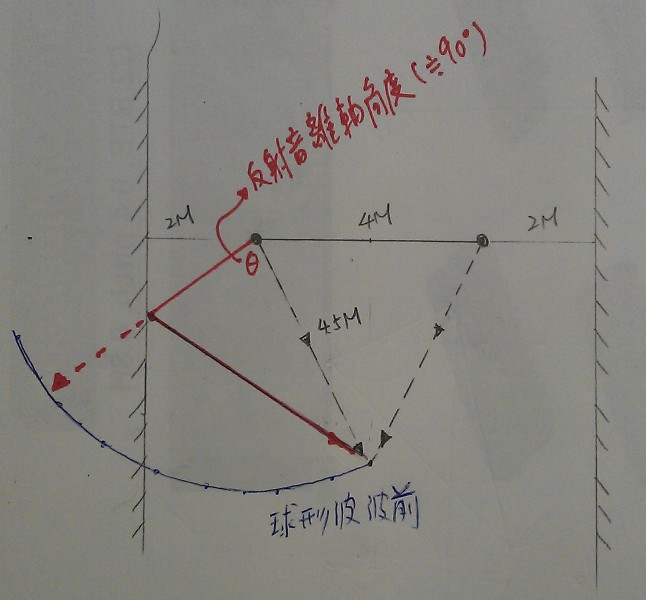 反射音離軸角度(≒90°)
2M
4M
2M
θ
4.5M
球形波波前